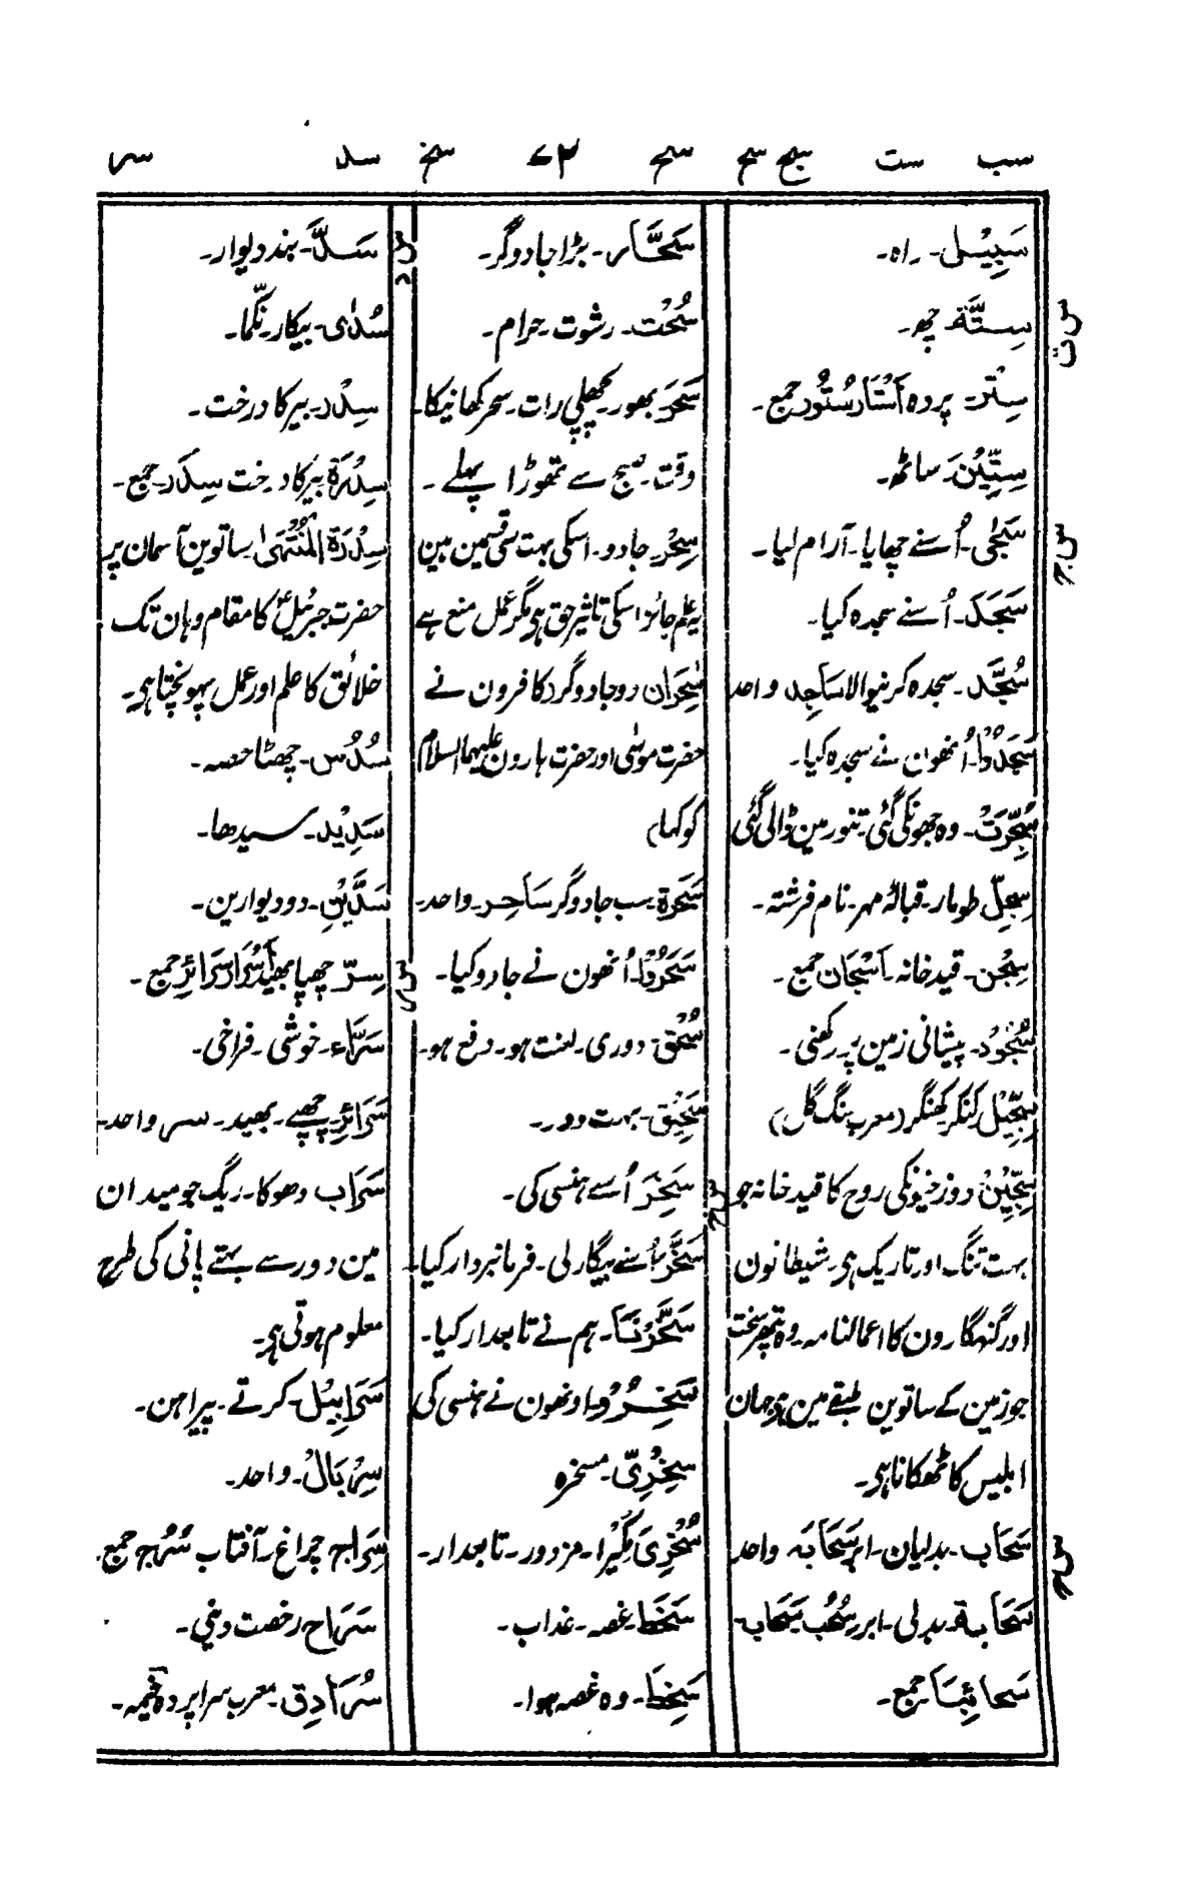 سب ست سج سح سح ۷۲ سخ سد سر
سَبِیْل۔ راہ۔
س ت
سِتَّۃ چھ۔
سِتْر۔ پردہ اَسْتَار سُتُور جمع۔
سِتِّیْنَ۔ ساٹھ۔
س ج
سَجٰی۔ اُسنے چھایا۔ آرام لیا۔
سَجَدَ۔ اُسنے سجدہ کیا۔
سُجَّد۔ سجدہ کرنیوالا سَاجِد واحد
سَجَدُوْا۔ اُنھون نے سجدہ کیا۔
سُجِّرَتْ۔ وہ جھونکی گئی۔ تنور مین ڈالی گئی
سِجِلّ طومار۔ قبالۂ مہر۔ نام فرشتہ۔
سِجْن۔ قیدخانہ۔ اَسْجَان جمع۔
سُجُوْد۔ پیشانی زمین پر رکھنی۔
سِجِّیْل کنکر کھنگر (معرب سنگ گل)
سِجِّیْنٌ دوزخیونکی روح کا قیدخانہ جو
بہت تنگ اور تاریک ہی۔ شیطانون
اور گنہگارون کا اعمالنامہ۔ وہ پتھر سخت
جو زمین کے ساتوین طبقے مین ہے جہان
ابلیس کا ٹھکانا ہی۔
س ح
سَحَاب۔ بدلیان۔ ابر سَحَابَہ واحد
سَحَابَۃ۔ بدلی۔ ابر سُحُب سَحَاب۔
سحائِبَا جمع۔
سَحَّار۔ بڑا جادوگر۔
سُحْت۔ رشوت۔ حرام۔
سَحَرَ بھور۔ پچھلی رات۔ سحر کھانیکا۔
وقت۔ صبح سے تھوڑا پہلے۔
سِحْر۔ جادو۔ اسکی بہت سی قسمین ہین
یہ علم جائز اسکی تاثیر حق ہی مگر عمل منع ہے
سِحْرَان دو جادوگر (کافرون نے
حضرت موسٰی اور حضرت ہارون علیہما السلام
کو کہا)
سَحَرَۃ۔ سب جادوگر سَاحِر۔ واحد۔
سَحَرُوْا۔ اُنھون نے جادو کیا۔
سُحْق۔ دوری۔ لعنت ہو۔ دفع ہو۔
سَحِیْق۔ بہت دور۔
س خ
سَخِرَ اُسنے ہنسی کی۔
سَخَّرَ۔ اُسنے بیگار لی۔ فرمانبردار کیا۔
سَخَّرْنَا۔ ہم نے تابعدار کیا۔
سَخِرُوْا۔ اونھون نے ہنسی کی
سِخْرِیّ۔ مسخرہ
سُخْرِیّ کمیرا۔ مزدور۔ تابعدار۔
سَخَط۔ غصہ۔ عذاب۔
سَخِطَ۔ وہ غصہ ہوا۔
س د
سَدّ۔ بند دیوار۔
سُدٰی۔ بیکار۔ نکّما۔
سِدْر۔ بیر کا درخت۔
سِدْرَۃ بیر کا درخت سِدَر۔ جمع۔
سِدْرَۃ الْمُنْتَہٰی۔ ساتوین آسمان پر
حضرت جبرئیل ؑ کا مقام وہان تک
خلائق کا علم اور عمل پہونچتا ہی۔
سُدُس۔ چھٹا حصہ۔
سَدِیْد۔ سیدھا۔
سَدَّیْنِ۔ دو دیوارین۔
س ر
سِرّ چھپا بھید اَسْرَار سَرَائِر جمع۔
سَرَّاء۔ خوشی۔ فراخی۔
سَرَائِر۔ چھپے۔ بھید۔ سر واحد۔
سَرَاب دھوکا۔ ریگ جو میدان
مین دور سے بہتے پانی کی طرح
معلوم ہوتی ہی۔
سَرَابِیْل۔ کرتے۔ پیراہن۔
سِرْبَالٌ۔ واحد۔
سِرَاج چراغ۔ آفتاب سُرُج جمع۔
سَرَاح رخصت دینی۔
سُرَادِق۔ معرب سراپردہ خیمہ۔